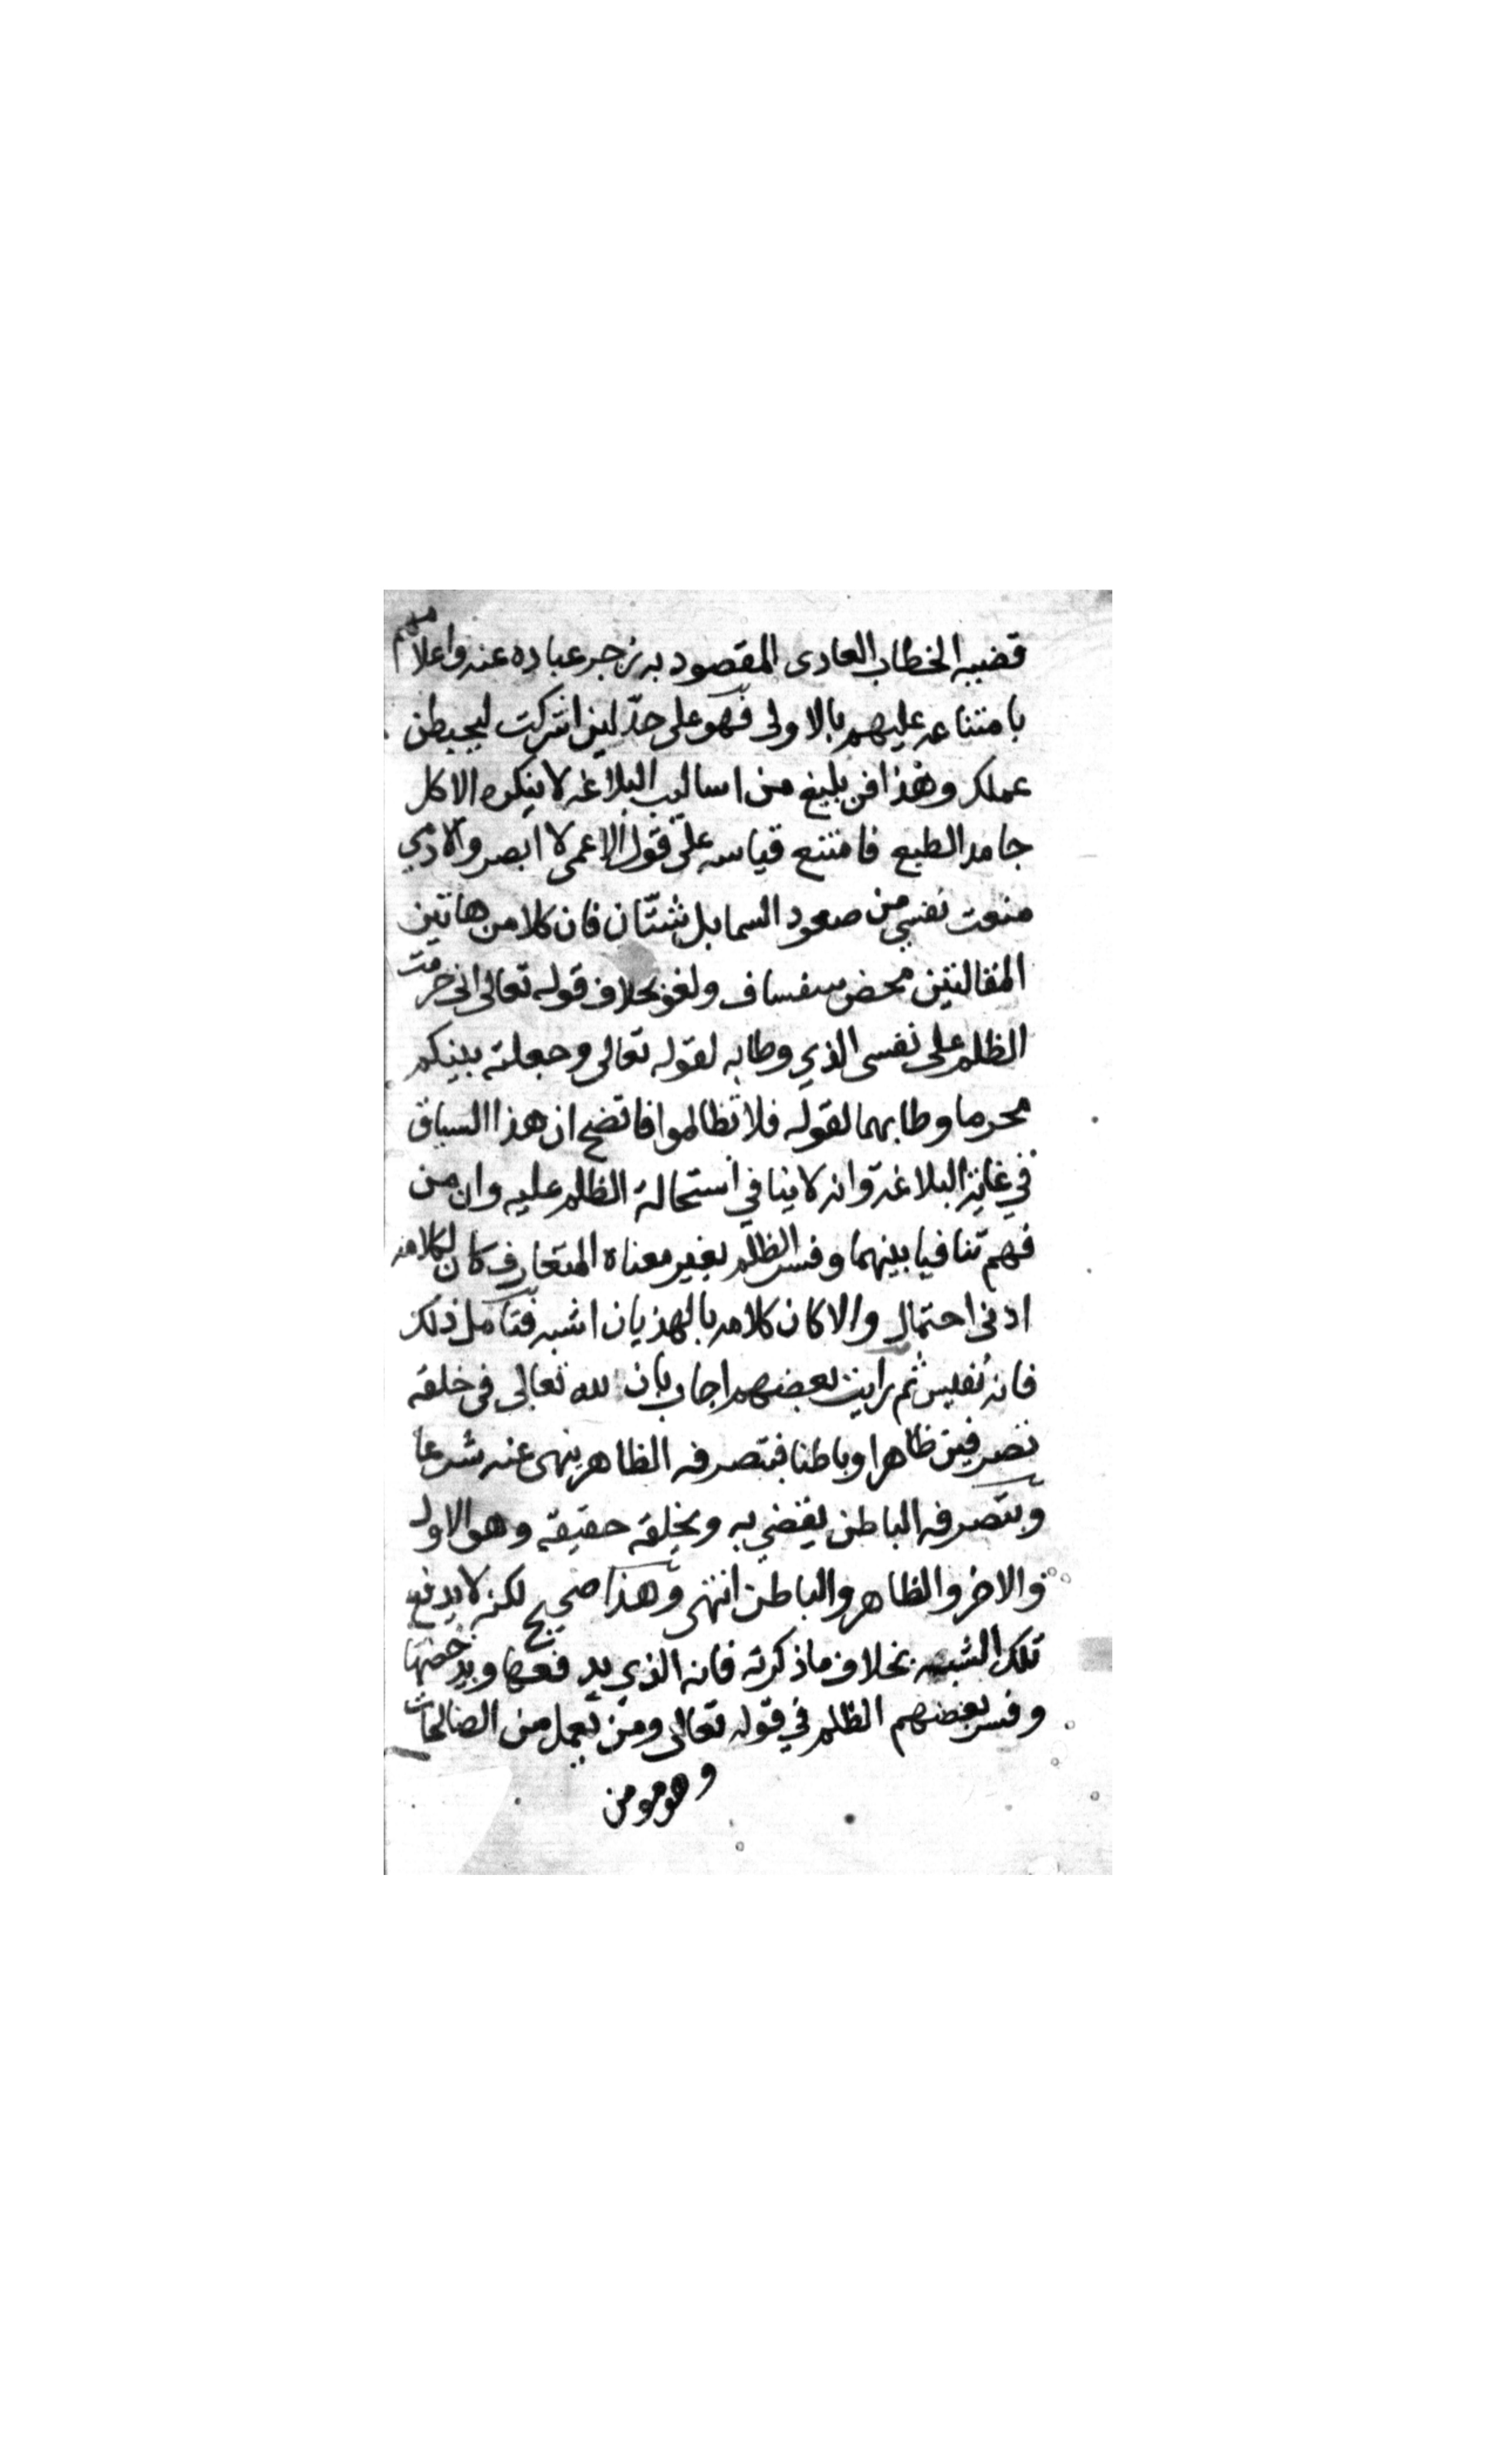 قضيه الخطاب العادى المقصود به زجر عباده عنه واعلامهم
بامتناعه عليهم بالاولى فهو على حدّ لين اشركت ليحبطن
عملك وهذا فن بليغ من اساليب البلاغه لا ينكره الا كل
جامد الطبع فامتنع قياسه على قول الاعمى لا ابصر والادمي
منعت نفسي من صعود السما بل شتّان فان كلا من هاتين
المقالتين محض سفساف ولغو بخلاف قوله تعالى انى حرمت
الظلم على نفسى الذي وطا به لقوله تعالى وجعلته بينكم
محرما وطا بهما لقوله فلا تظالموا فاتضح ان هذا السياق
في غاية البلاغة وانه لا ينافي استحالة الظلم عليه وان من
فهم تنافيا بينهما وفسر الظلم بغير معناه المتعارف كان لكلامه
ادنى احتمال والا كان كلامه بالهذيان اشبه فتأمل ذلك
فانه نفيس ثم رايت بعضهم اجاب بان لله تعالى فى خلقه
تصرفين ظاهرا وباطنا فبتصرفه الظاهر ينهى عنه شرعا
وبتصرفه الباطن يقضي به ويخلقه حقيقه وهو الاول
والاخر والظاهر والباطن انتهى وهذا صحيح لكنه لا يدفع
تلك الشبهه بخلاف ما ذكرته فانه الذي يدفعها ويدحضها
وفسر بعضهم الظلم في قوله تعالى ومن يعمل من الصالحات
وهو مومن